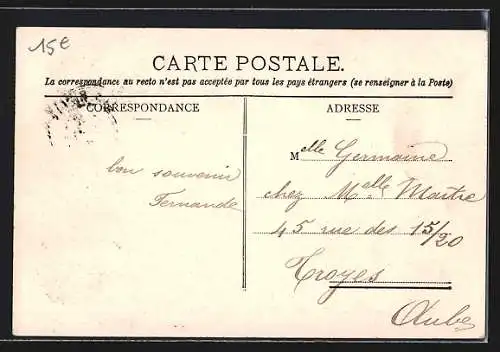 15€
CARTE POSTALE.
La correspondance au recto n'est pas acceptée par tous les pays étrangers (se renseigner à la Poste)
CORRESPONDANCE
ADRESSE
bon souvenir
Fernande
Melle Germaine
chez Melle Maitre
45 rue des 15/20
Troyes
Aube